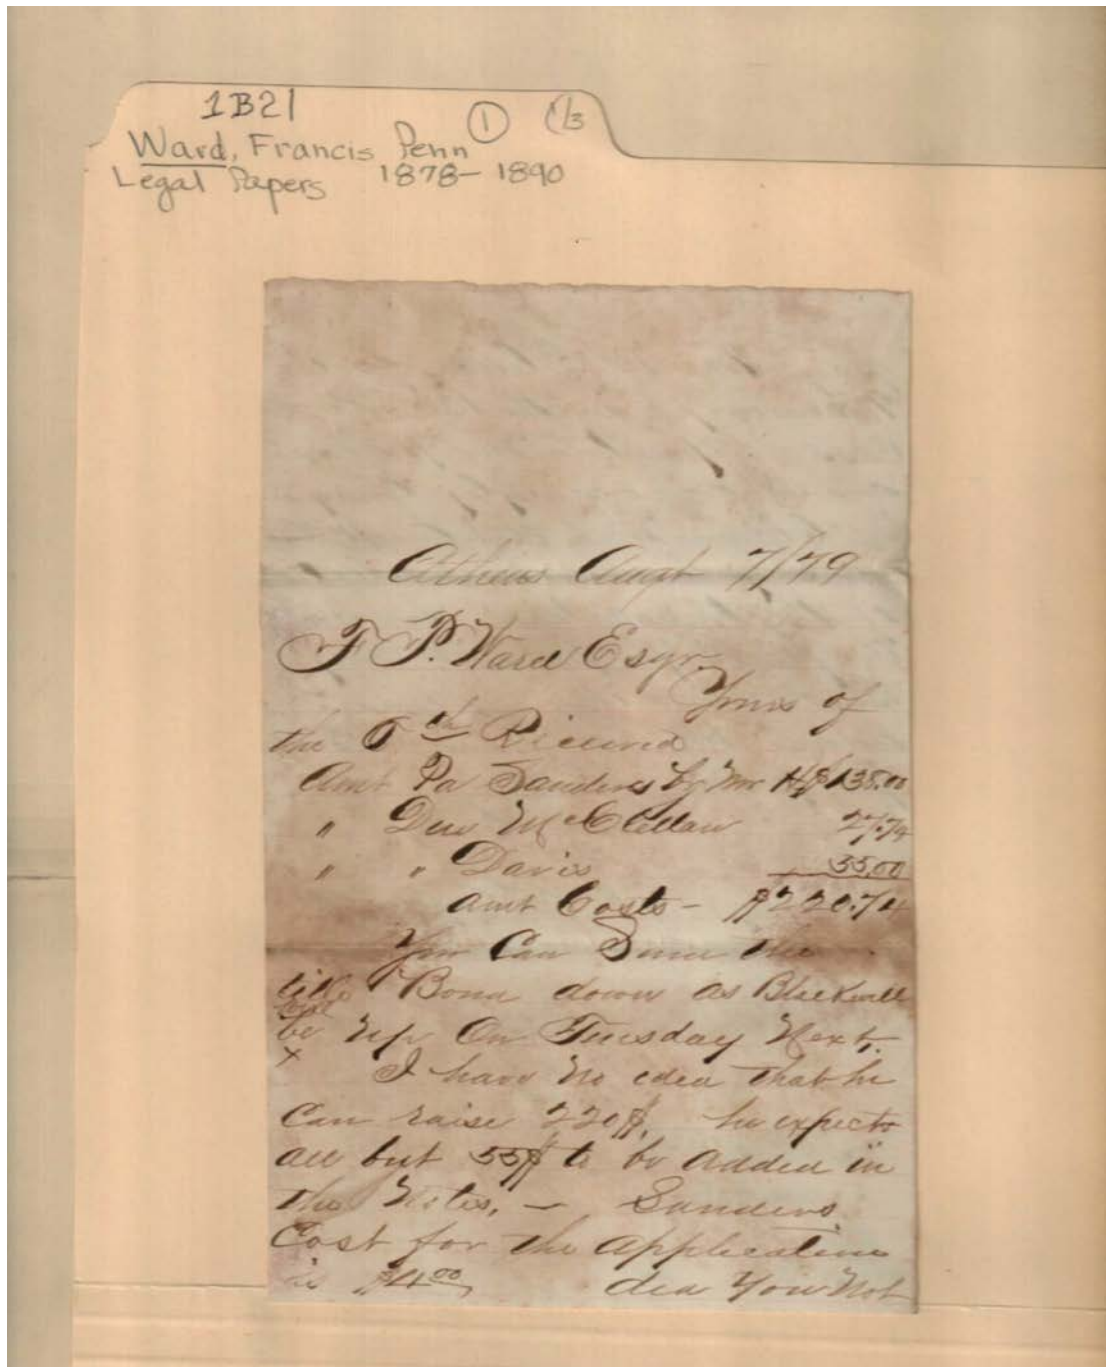 1B21
① 1/3
Ward, Francis Penn
Legal Papers 1878-1890
Athens Augt 7/79
F P. Ward Esqr
Yours of
the 6th Received
Amt Pa Sanders by Mr H $138.00
" Due McClellan 27.74
" " Davis 55.00
Amt Costs - $220.74
You Can Send the
title Bond down as Blackwell
will
be up On Tuesday Next.
x
I have no idea that he
Can raise 220$, he expects
all but 55$ to be added in
the Notes, — Sanders
Cost for the application
is $4.00 did you not